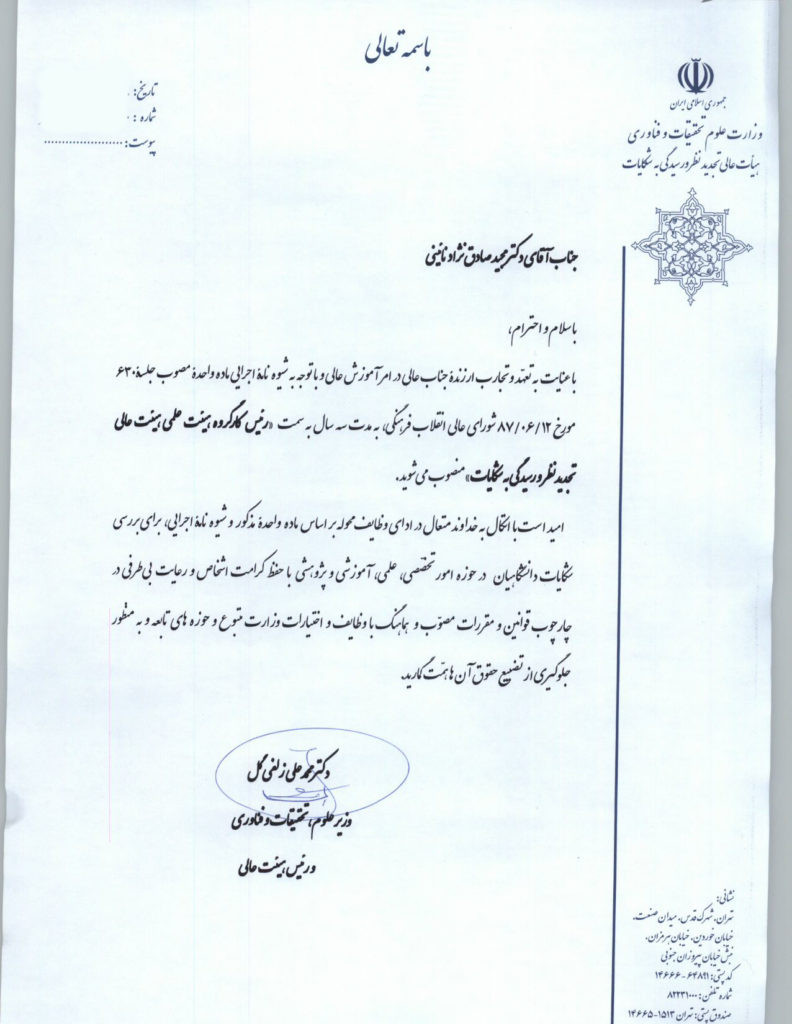 باسمه تعالی
جمهوری اسلامی ایران
وزارت علوم تحقیقات و فناوری
هیأت عالی تجدید نظر و رسیدگی به شکایات
تاریخ:
شماره:
پیوست:
جناب آقای دکتر مجید صادق نژاد نائینی
باسلام و احترام،
با عنایت به تعهد و تجارب ارزندۀ جناب عالی در امر آموزش عالی و با توجه به شیوه نامۀ اجرایی ماده واحدۀ مصوب جلسۀ ۶۳۰
مورخ ۸۷/۰۶/۱۲ شورای عالی انقلاب فرهنگی، به مدت سه سال به سمت «رئیس کارگروه هیئت علمی هیئت عالی
تجدید نظر و رسیدگی به شکایات» منصوب می شوید.
امید است با اتکال به خداوند متعال در ادای وظایف محوله بر اساس ماده واحدۀ مذکور و شیوه نامۀ اجرایی، برای بررسی
شکایات دانشگاهیان در حوزه امور تخصصی، علمی، آموزشی و پژوهشی با حفظ کرامت اشخاص و رعایت بی طرفی در
چارچوب قوانین و مقررات مصوب و هماهنگ با وظایف و اختیارات وزارت متبوع و حوزه های تابعه و به منظور
جلوگیری از تضییع حقوق آن ها همّت گمارید.
دکتر محمد علی زلفی گل
وزیر علوم، تحقیقات و فناوری
و رئیس هیئت عالی
نشانی:
تهران، شهرک قدس، میدان صنعت،
خیابان خوردین، خیابان هرمزان،
نبش خیابان پیروزان جنوبی
کد پستی: ۶۴۸۹۱-۱۴۶۶۶
شماره تلفن: ۸۲۲۳۱۰۰۰
صندوق پستی: تهران ۱۵۱۳-۱۴۶۶۵